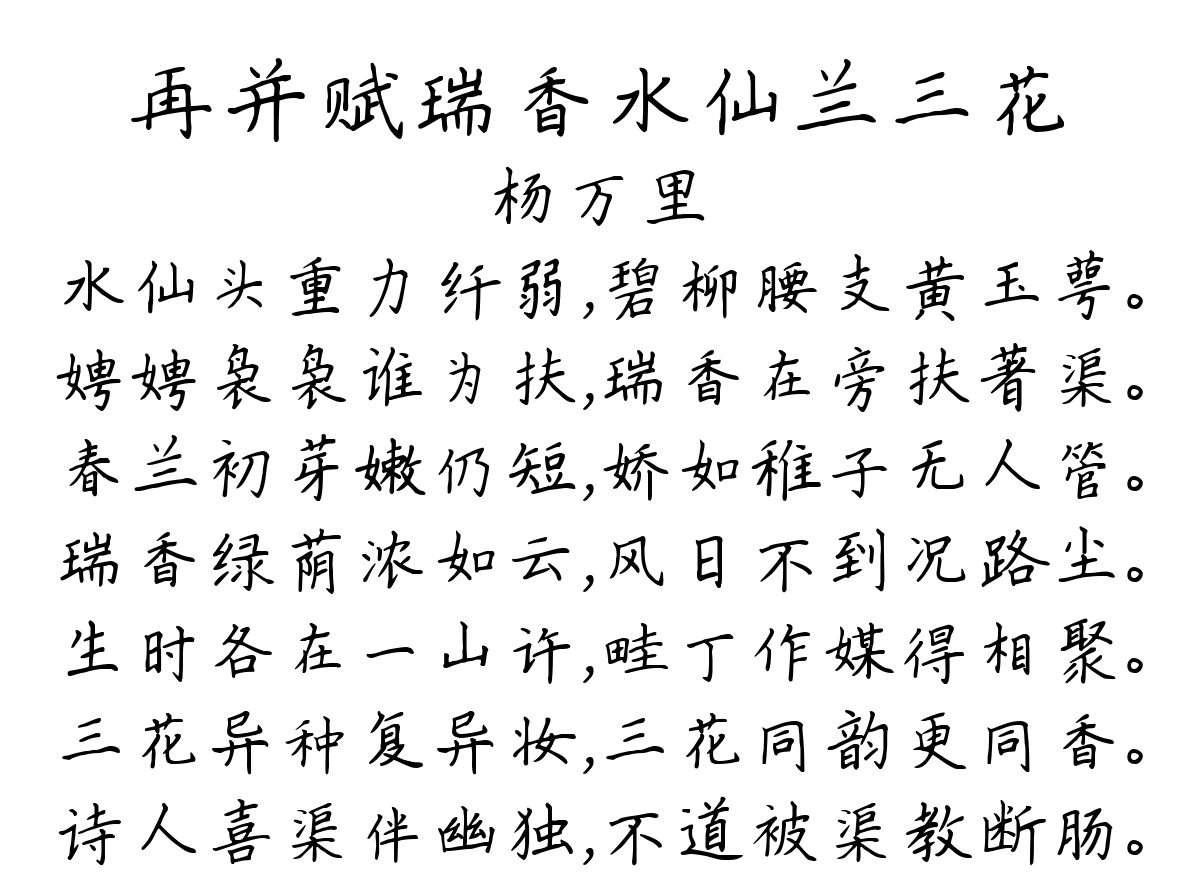 再并赋瑞香水仙兰三花
杨万里
水仙头重力纤弱,碧柳腰支黄玉萼。
娉娉袅袅谁为扶,瑞香在旁扶著渠。
春兰初芽嫩仍短,娇如稚子无人管。
瑞香绿荫浓如云,风日不到况路尘。
生时各在一山许,畦丁作媒得相聚。
三花异种复异妆,三花同韵更同香。
诗人喜渠伴幽独,不道被渠教断肠。